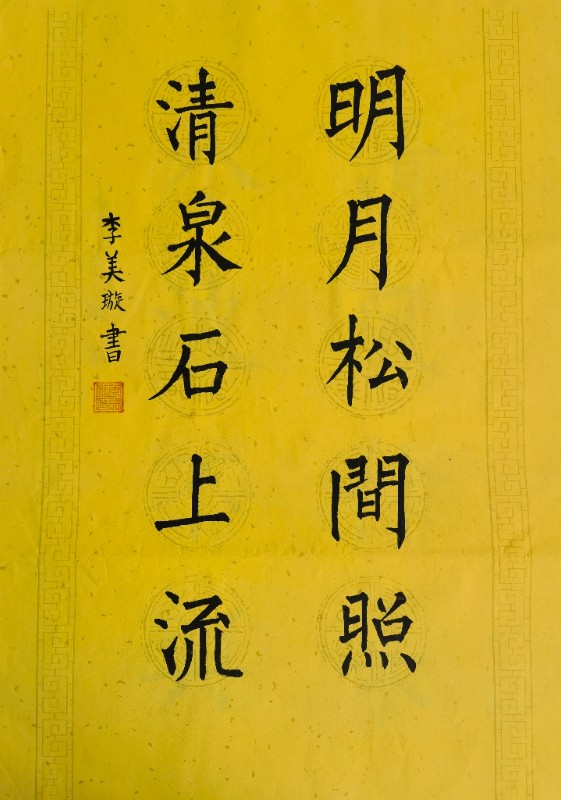 明月松間照
清泉石上流
李美璇書